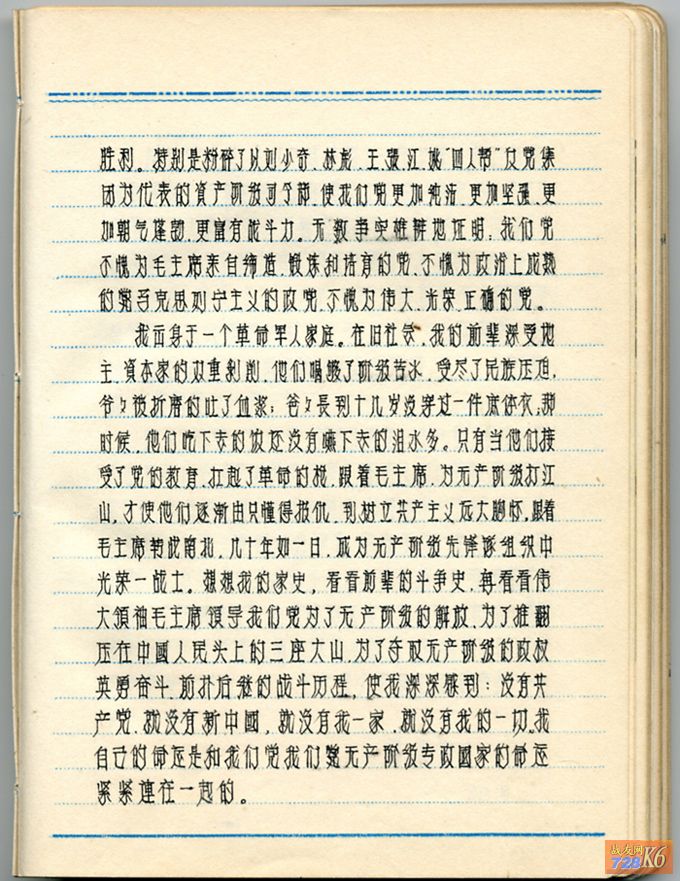 胜利。特别是粉碎了从刘少奇、林彪、王张江姚“四人帮”反党集
团为代表的資产阶级司令部,使我们党更加纯洁、更加坚强、更
加朝气蓬勃、更富有战斗力。无数事实雄辩地证明:我们党
不愧为毛主席亲自缔造、锻炼和培育的党、不愧为政治上成熟
的马克思列宁主义的政党、不愧为伟大、光荣、正确的党。
我出身于一个革命军人家庭。在旧社会、我的前辈深受地
主、資本家的双重剥削,他们喝够了阶级苦水,受尽了民族压迫,
爷々被折磨的吐了血浆;爸々長到十几岁没穿过一件庥体衣;那
时候,他们吃下去的饭还没有嚥下去的泪水多。只有当他们接
受了党的教育、扛起了革命的枪、跟着毛主席,为无产阶级打江
山,才使他们逐渐由只懂得报仇,到树立共产主义远大胸怀,跟着
毛主席转战南北,几十年如一日,成为无产阶级先锋队组织中
光荣一战士。想想我的家史,看看前辈的斗争史,再看看伟
大領袖毛主席領导我们党为了无产阶级的解放、为了推翻
压在中國人民头上的三座大山、为了夺取无产阶级的政权
英勇奋斗、前扑后继的战斗历程,使我深深感到:没有共
产党、就没有新中國,就没有我一家,就没有我的一切。我
自己的命运是和我们党我们党无产阶级专政國家的命运
紧紧連在一起的。
战友网
728K6